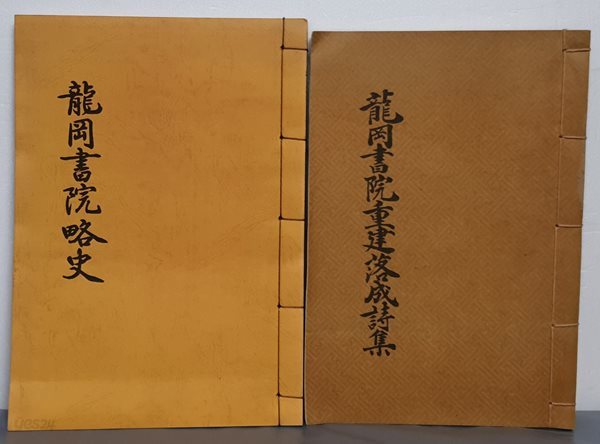 龍岡書院略史
龍岡書院重建落成詩集
yes24